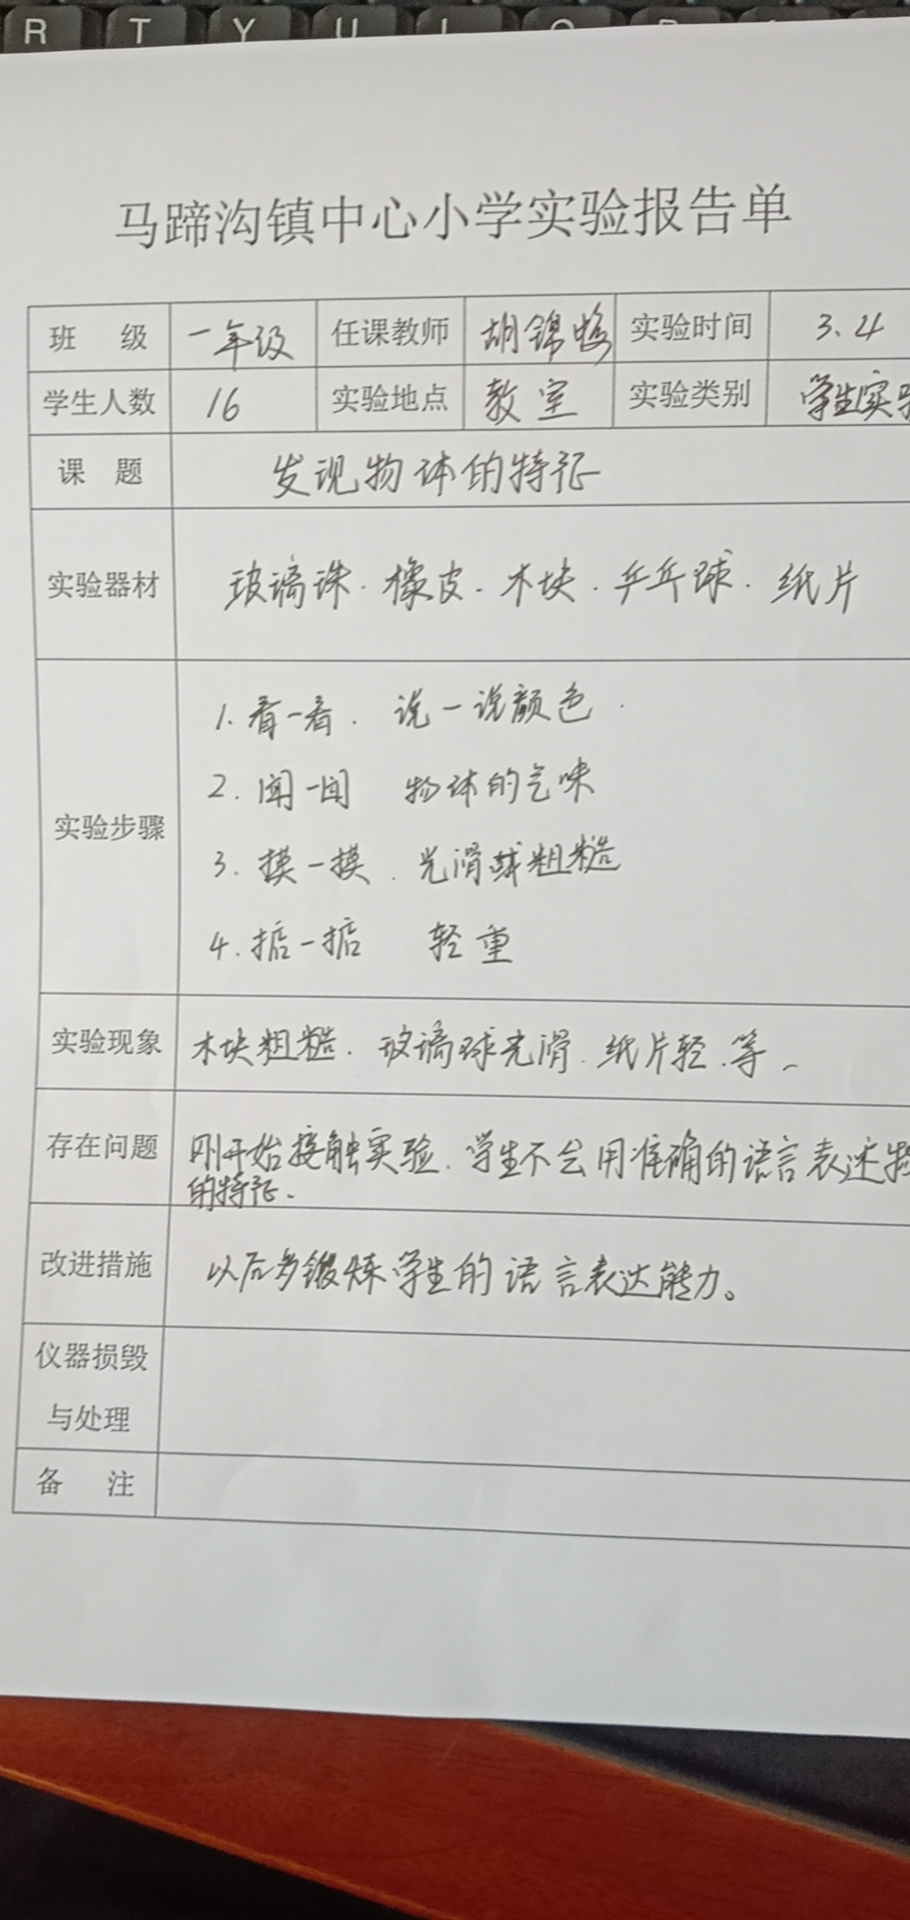 R T Y U I O P
马蹄沟镇中心小学实验报告单
班 级 一年级 任课教师 胡锦 实验时间 3.4
学生人数 16 实验地点 教室 实验类别 学生实
课 题 发现物体的特征
实验器材 玻璃珠.橡皮.木块.乒乓球.纸片
实验步骤
1.看一看. 说一说颜色.
2.闻一闻 物体的气味
3.摸一摸.光滑或粗糙
4.掂一掂 轻重
实验现象 木块粗糙.玻璃球光滑.纸片轻.等
存在问题 刚开始接触实验.学生不会用准确的语言表述
的特征.
改进措施 以后多锻炼学生的语言表达能力。
仪器损毁
与处理
备 注